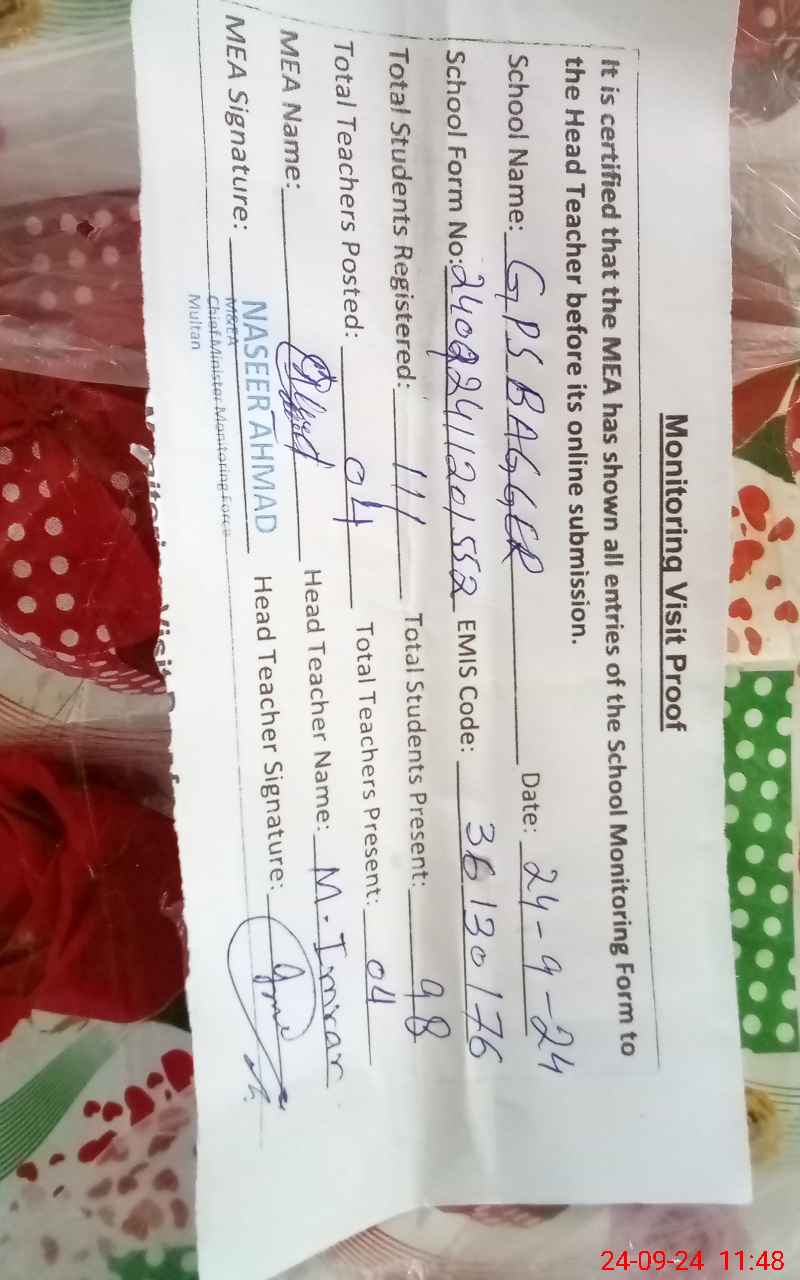 Monitoring Visit Proof
It is certified that the MEA has shown all entries of the School Monitoring Form to
the Head Teacher before its online submission.
School Name: GPS BAGGER Date: 24-9-24
School Form No: 24092411201552 EMIS Code: 36130176
Total Students Registered: 111 Total Students Present: 98
Total Teachers Posted: 04 Total Teachers Present: 04
MEA Name: Head Teacher Name: M. Imran
MEA Signature: Head Teacher Signature:
NASEER AHMAD
M&EA
Chief Minister Monitoring Force
Multan
24-09-24 11:48